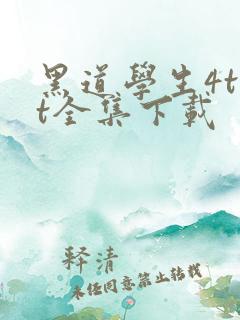 黑道學生4t
t全集下載
釋清
未经同意禁止转载